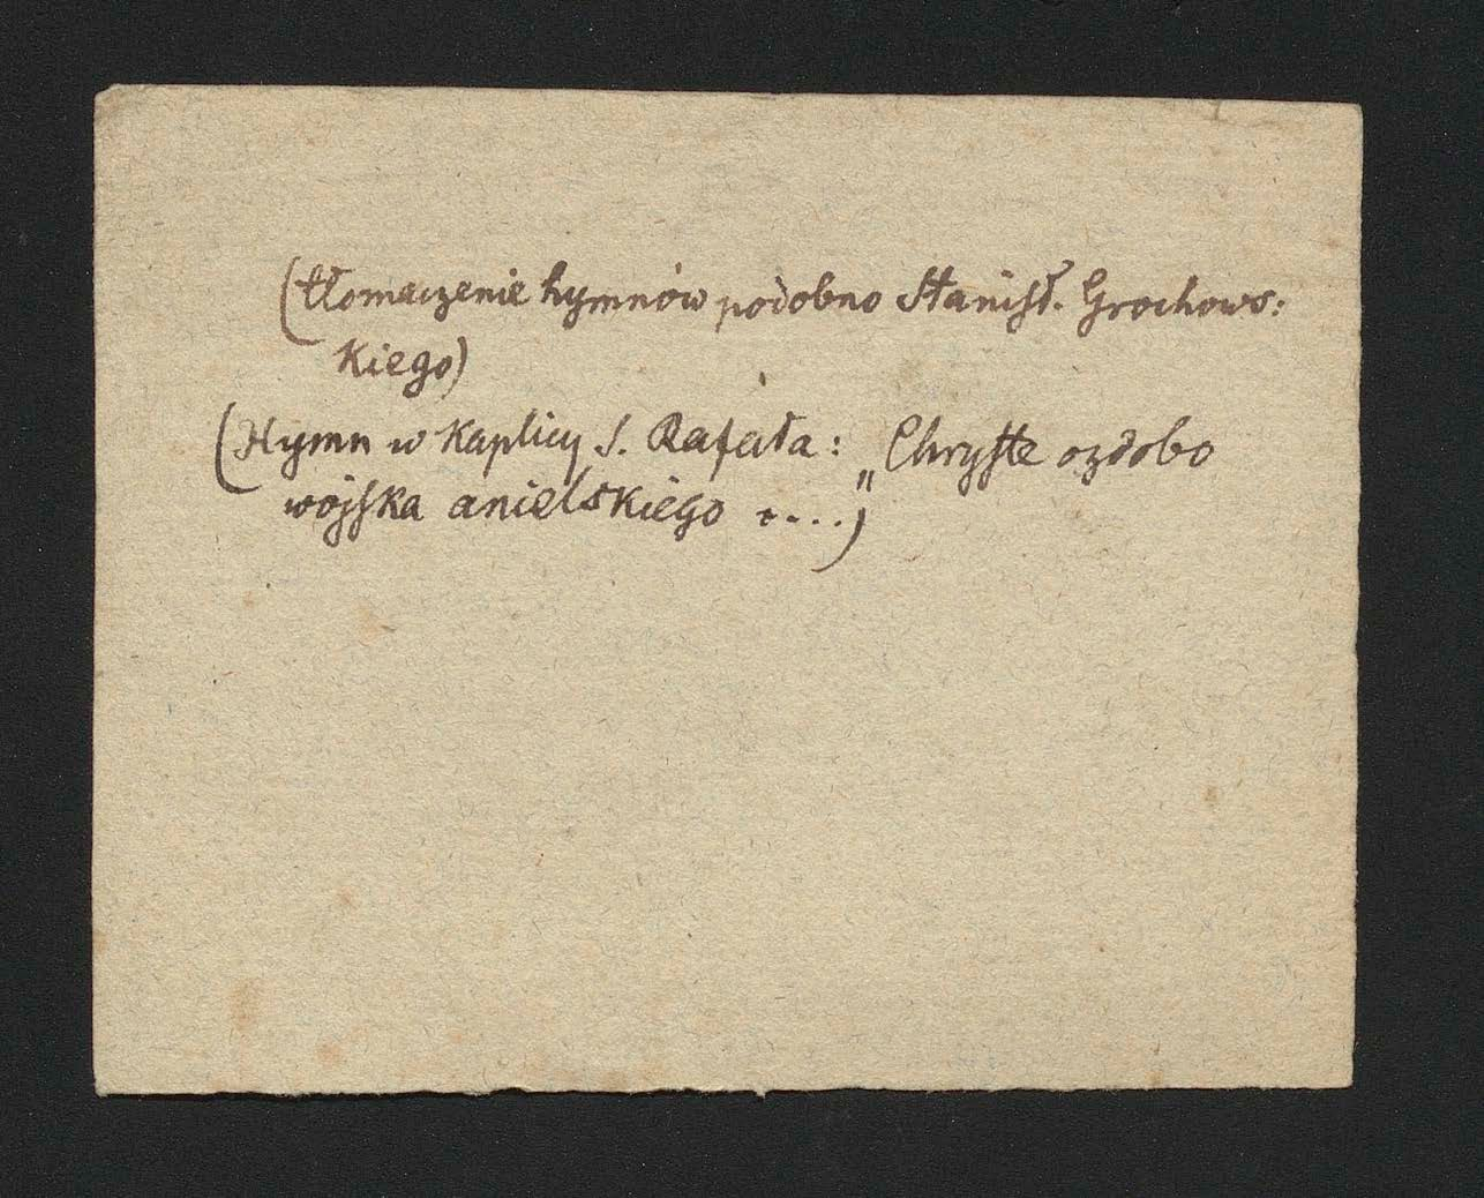 (tłomaczenie hymnów podobno Stanisł. Grochows:
kiego)
(Hymn w kaplicy S. Rafała: „Chryste ozdobo
wojska anielskiego .....)